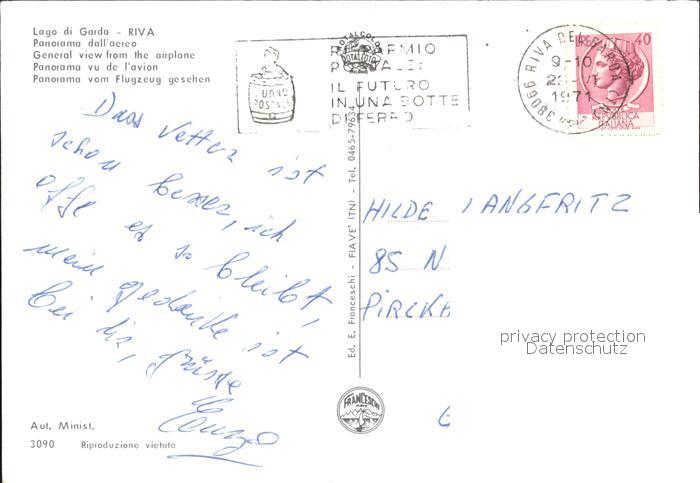 Lago di Garda - RIVA
Panorama dall'aereo
General view from the airplane
Panorama vu de l'avion
Panorama vom Flugzeug gesehen
RISPARMIO
POSTALE:
IL FUTURO
IN UNA BOTTE
DI FERRO
BUONO
POSTALE
TOTALCOLOR
38066 RIVA DEL GARDA
9-10
1971
LIRE 40
REPUBBLICA
ITALIANA
Daas Vetter ist
schon besser, ich
offe es so bleibt,
mein gedanke ist
bei dir, grüsse
Enzo
HILDE LANGFRITZ
85 N
PIRCKH
privacy protection
Datenschutz
Ed. E. Franceschi - FIAVE' (TN) - Tel. 0465-79634
FRANCESCHI
Aut. Minist.
3090 Riproduzione vietata